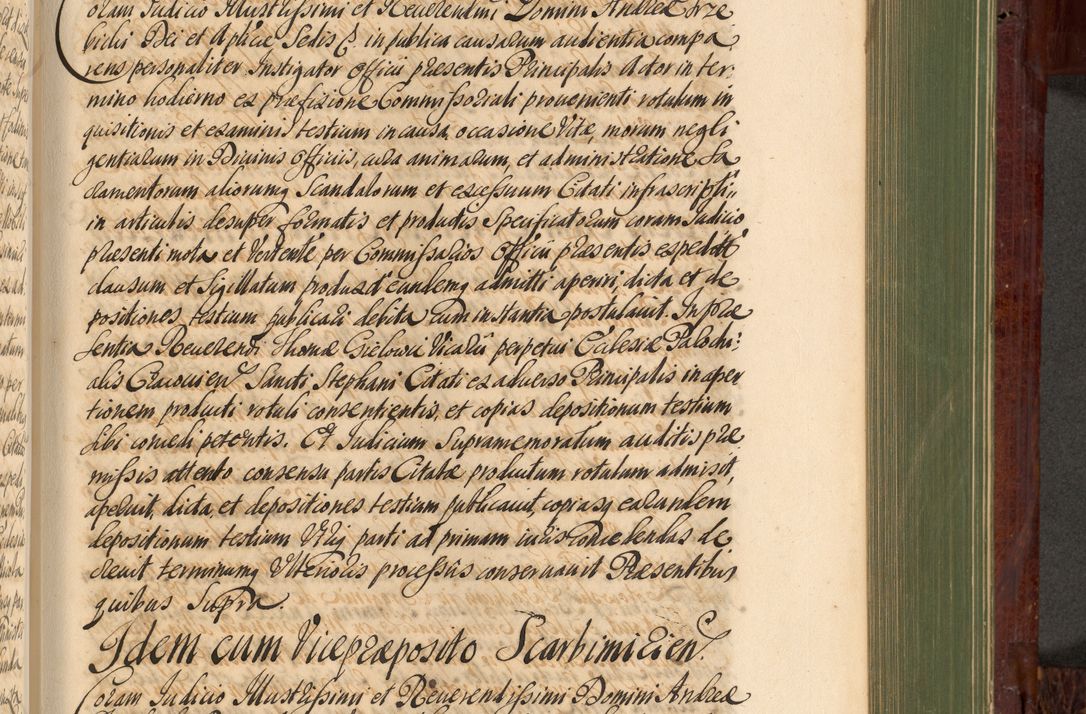 Coram Judicio Illustrissimi et Reverendissimi Domini Andreæ Trze
bicki Dei et Aplicæ Sedis G. in publica causarum audientia compa
rens personaliter Instigator Officii præsentis Principalis Actor in ter
mino hodierno ex præfixione Commissoriali provenienti rotulum in
quisitionis et examinis testium in causa, occasione Vitæ, morum negli
gentiarum in Divinis Officiis, cura animarum, et administratione Sa
cramentorum aliorumq Scandalorum et excessuum Citati infrascripti,
in articulis desuper formatis et productis Specificatorum coram Judicio
præsenti mota et Vertente per Commissarios Officii præsentis expeditū
clausum et Sigillatum produxit eundemq admitti aperiri, dicta et de
positiones testium publicari debita cum instantia postulavit. In præ
sentia Reverendi Thomæ Cielowic Vicarii perpetui Ecclesiæ Parochi:
alis Cracovien Sancti Stephani Citati ex adverso Principalis in aper
tionem producti rotuli consentientis, et copias depositionum testium
sibi concedi petentis. Et Judicium Supramemoratum auditis præ
missis attento consensu partis Citatæ productum rotulum admisit,
aperuit, dicta, et depositiones testium publicavit, copiasq earundem
depositionum testium Utriq parti ad primam iuris concedendas de
crevit terminumq Ulterioris processus conservavit Præsentibus
quibus Supra.
Idem cum Vicepræposito Scarbimirien.
Coram Judicio Illustrissimi et Reverendissimi Domini Andreæ